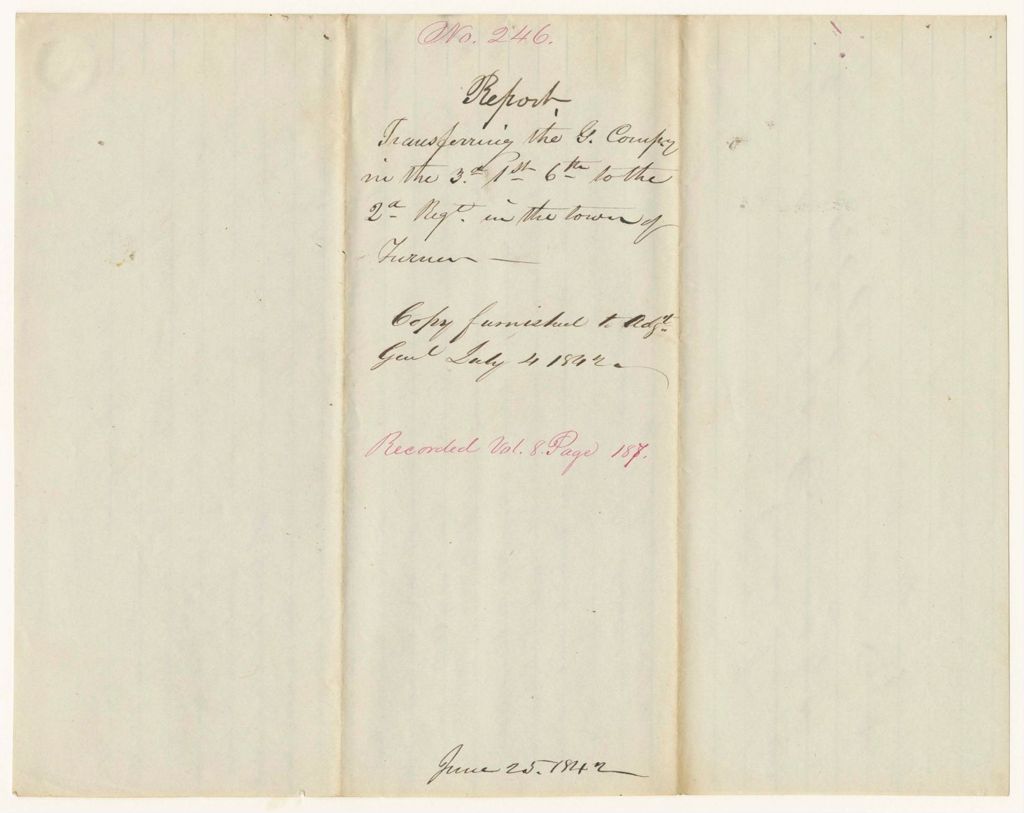 No. 246.
Report
Transferring the G. Compy
in the 3.d 1st 6th to the
2d Regt. in the town of
Turner —
Copy furnished to Adjt.
Genl July 4 1842.
Recorded Vol. 8. Page 187.
June 25. 1842